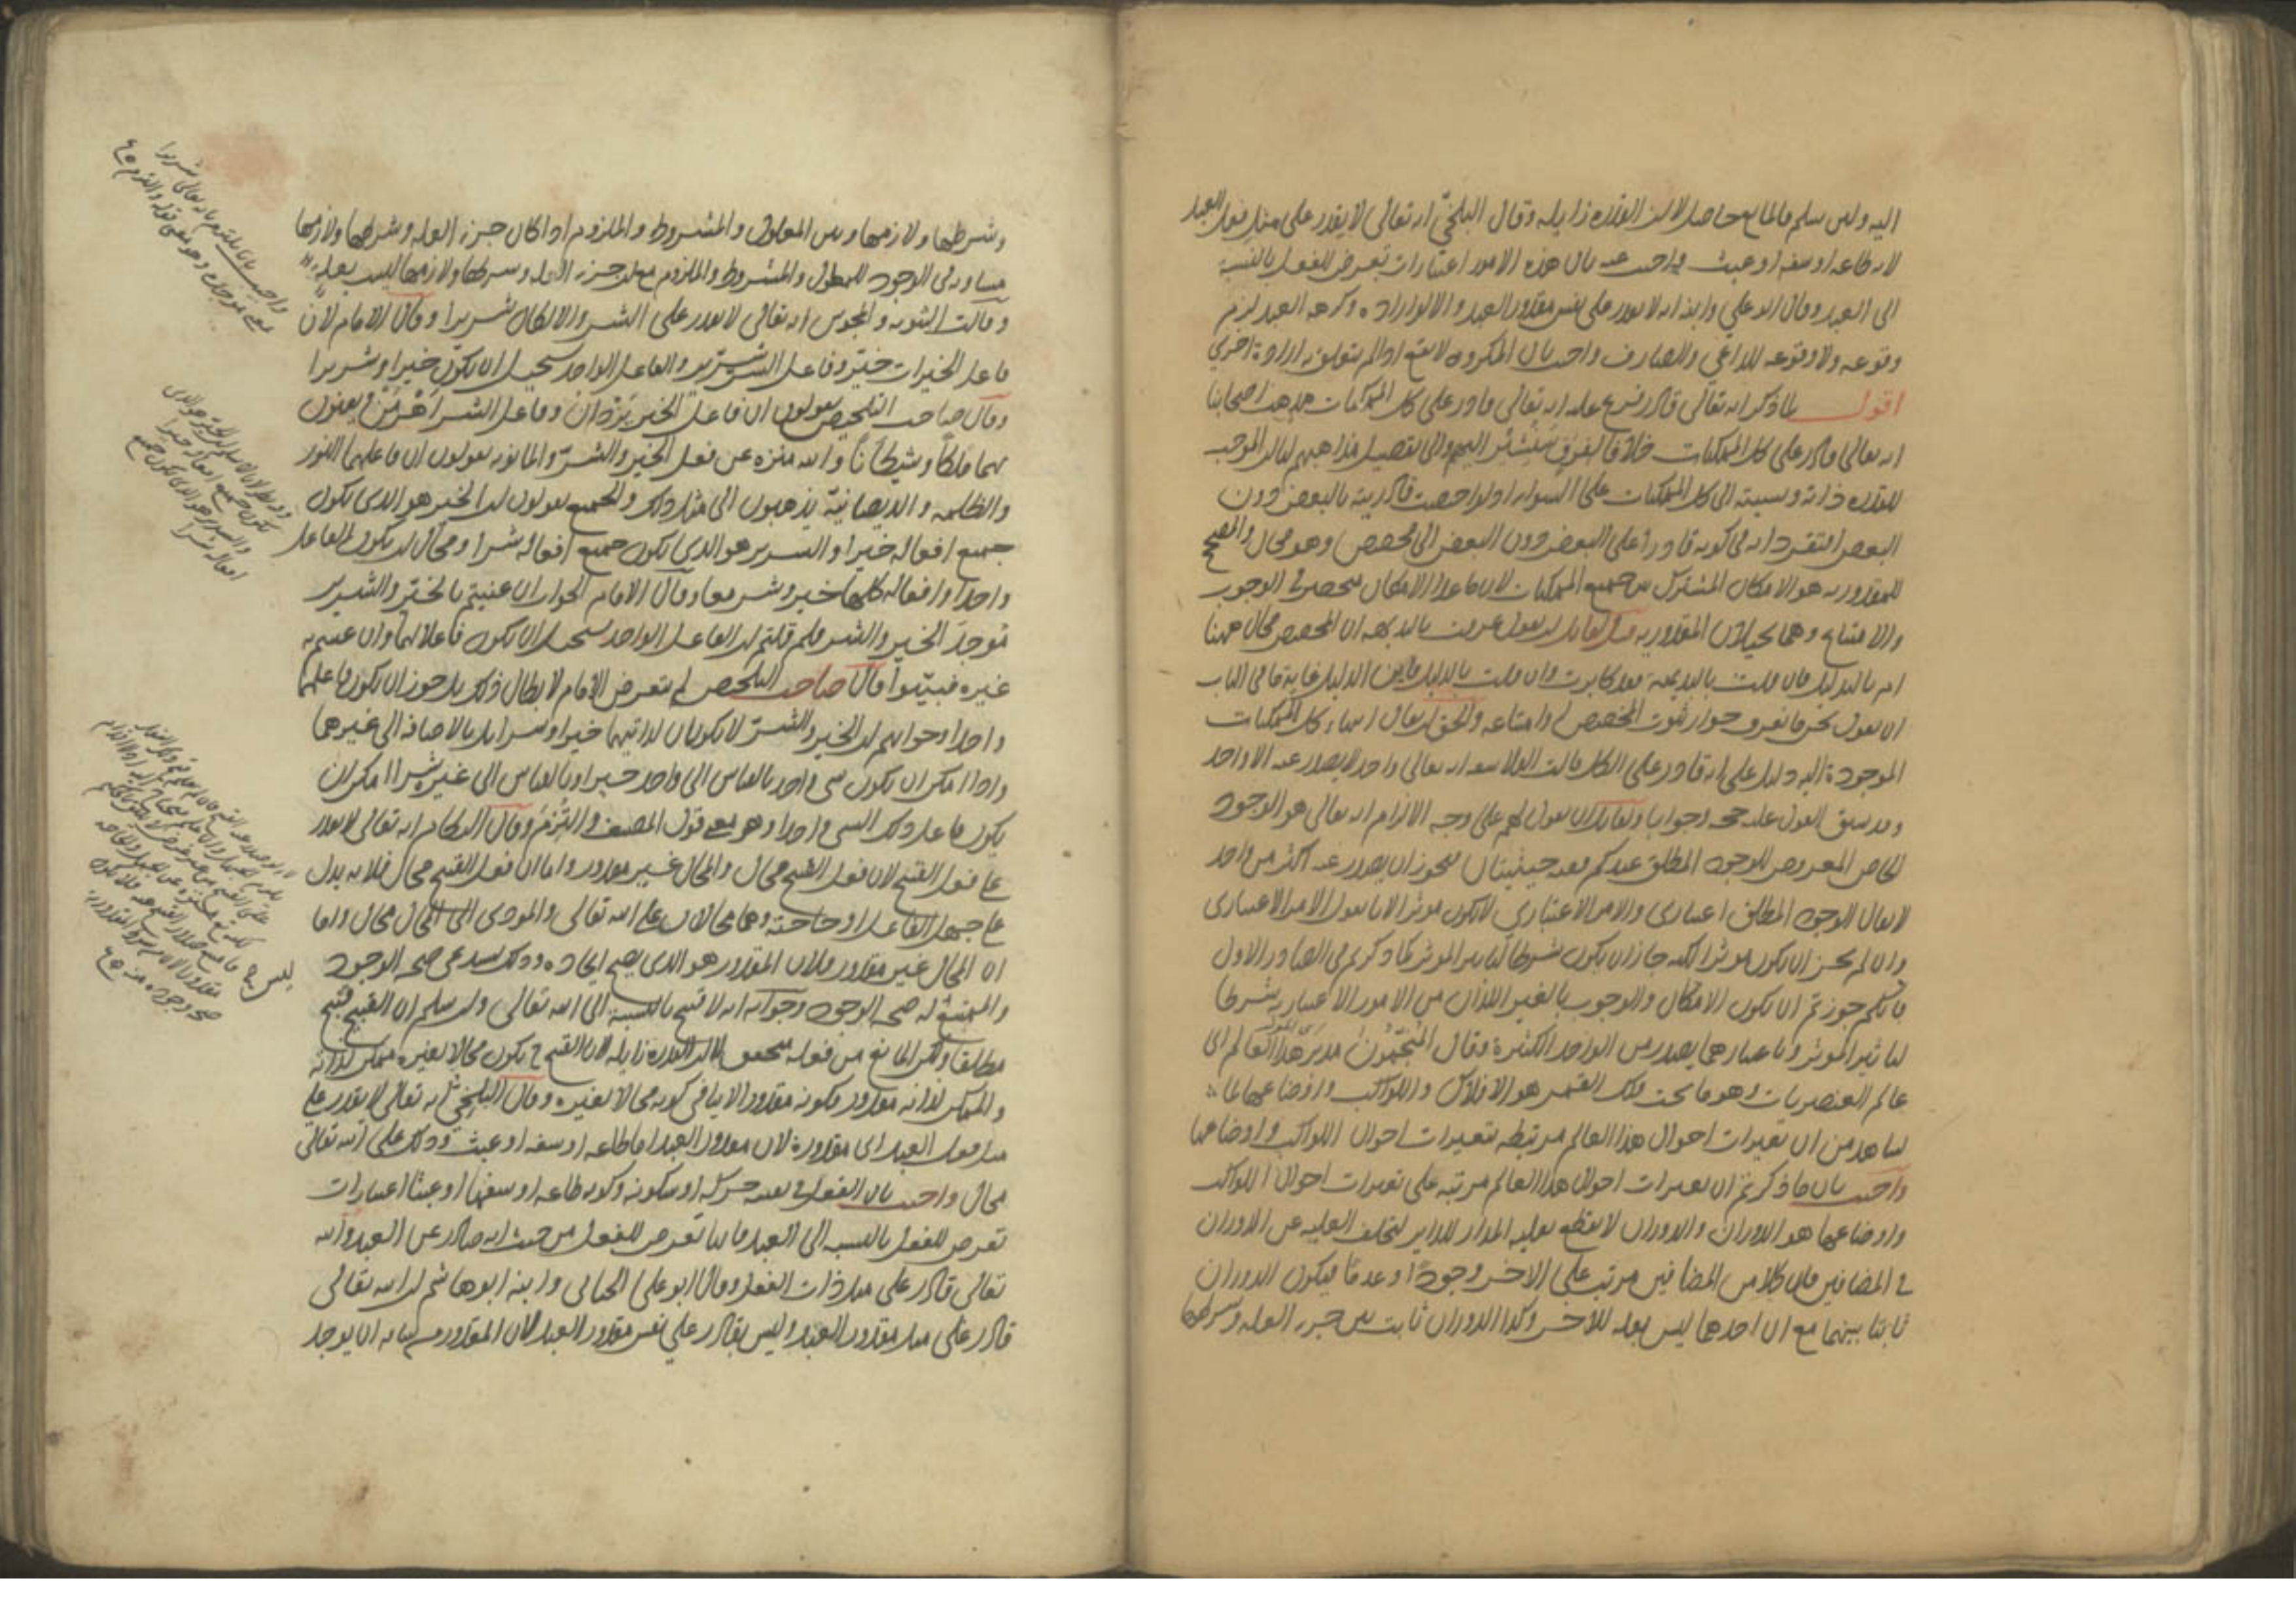 اليه ولئن سلم فالمانع حاصل لا لان القدرة زايله وقال البلخي انه تعالى لا يقدر على مثل فعل العبد
لانه طاعة او سفه او عبث واجيب عنه بان هذه الامور اعتبارات تعرض للفعل بالنسبة
الى العبد وقال ابو علي وابنه انه لا يقدر على نفس مقدور العبد والا لو اراده وكرهه العبد لزم
وقوعه ولا وقوعه للداعي والصارف واجيب بان المكروه لا يقع اذا لم يتعلق به ارادة اخرى
اقول لما ذكر انه تعالى قادر فرع عليه انه تعالى قادر على كل الممكنات مذهب اصحابنا
انه تعالى قادر على كل الممكنات خلافا لفرق سنشير اليهم والى تفصيل مذاهبهم لنا ان الموجب
للقدرة ذاته ونسبته الى كل الممكنات على السواء اذ لو اختصت قادريته بالبعض دون
البعض افتقر ذاته في كونه قادرا على البعض دون البعض الى مخصص وهو محال والمصحح
للمقدورية هو الامكان المشترك بين جميع الممكنات لان ما عدا الامكان منحصر في الوجوب
والامتناع وهما يحيلان المقدورية ولقايل ان يقول عرفت بالبديهة ان المخصص محال ههنا
ام بالدليل فان قلت بالبديهة فقد كابرت وان قلت بالدليل فاين الدليل غاية ما في الباب
ان يقول نحن ما نعرف جواز ثبوت المخصص او امتناعه والحق ان يقال انتهاء كل الممكنات
الموجودة اليه دليل على انه قادر على الكل قالت الفلاسفة انه تعالى واحد لا يصدر عنه الا واحد
وقد سبق القول عليه حجة وجوابا ولقايل ان يقول لهم على وجه الالزام انه تعالى هو الوجود
الخاص المعروض للوجود المطلق عندكم ففيه حيثيتان فيجوز ان يصدر عنه اكثر من واحد
لا يقال الوجود المطلق اعتباري والامر الاعتباري لا يكون موثرا لانا نقول الامر الاعتباري
وان لم يجز ان يكون موثرا لكنه جاز ان يكون شرطا لتاثير الموثر كما ذكرتم في الصادر الاول
فانكم جوزتم ان يكون الامكان والوجوب بالغير اللذان من الامور الاعتبارية شرطا
لتاثير الموثر وباعتبارهما يصدر من الواحد الكثرة وقال المنجمون مدبر هذا العالم اي
عالم العنصريات وهو ما تحت فلك القمر هو الافلاك والكواكب واوضاعها لما
نشاهد من ان تغيرات احوال هذا العالم مرتبطة بتغيرات احوال الكواكب واوضاعها
واجيب بان ما ذكرتم ان تغيرات احوال هذا العالم مرتبة على تغيرات احوال الكواكب
واوضاعها هو الدوران والدوران لا يقطع بعلية المدار للداير لتخلف العلية عن الدوران
في المضافين فان كلا من المضافين مرتب على الاخر وجودا وعدما فيكون الدوران
ثابتا بينهما مع ان احدهما ليس بعلة للاخر وكذا الدوران ثابت بين جزء العلة وشرطها
وشرطها ولازمها وبين المعلول والمشروط والملزوم اذا كان جزء العلة وشرطها ولازمها
مساويا في الوجود للمعلول والمشروط والملزوم مع ان جزء العلة وشرطها ولازمها ليست بعلة
وقالت الثنوية والمجوس انه تعالى لا يقدر على الشر والا لكان شريرا وقال الامام لان
فاعل الخيرات خير وفاعل الشر شرير والفاعل الواحد يستحيل ان يكون خيرا وشريرا
وقال صاحب التلخيص يقولون ان فاعل الخير يزدان وفاعل الشر اهرمن ويعنون
بهما ملكا وشيطانا والله منزه عن فعل الخير والشر والمانوية يقولون ان فاعلهما النور
والظلمة والديصانية يذهبون الى مثل ذلك والجميع يقولون ان الخير هو الذي يكون
جميع افعاله خيرا والشرير هو الذي يكون جميع افعاله شرا ومحال ان يكون الفاعل
واحدا وافعاله كلها خير وشر معا وقال الامام الجواب ان عنيتم بالخير والشرير
موجد الخير والشر فلم قلتم ان الفاعل الواحد يستحيل ان يكون فاعلا لهما وان عنيتم به
غيره فبينوا قال صاحب التلخيص لم يتعرض الامام لابطال ذلك بل جوز ان يكون فاعلهما
واحدا وجوابهم ان الخير والشر لا يكونان لذاتيهما خيرا وشرا بل بالاضافة الى غيرهما
واذا امكن ان يكون شي واحد بالقياس الى واحد خيرا وبالقياس الى غيره شرا امكن ان
يكون فاعل ذلك الشي واحدا وهو معنى قول المصنف والتزم وقال النظام انه تعالى لا يقدر
على فعل القبيح لان فعل القبيح محال والمحال غير مقدور واما ان فعل القبيح محال فلانه يدل
على جهل الفاعل او حاجته وهما محالان على الله تعالى والمودي الى المحال محال واما
ان المحال غير مقدور فلان المقدور هو الذي يصح ايجاده وذلك يستدعي صحة الوجود
والممتنع ليس له صحة الوجود وجوابه انه لا قبيح بالنسبة الى الله تعالى ولئن سلم ان القبيح قبيح
مطلقا ولكن المانع من فعله متحقق لا لان القدرة زايلة لان القبيح ح يكون محالا لغيره ممكن لذاته
والممكن لذاته مقدور وكونه مقدورا لا ينافي كونه محالا لغيره وقال البلخي انه تعالى لا يقدر على
مثل فعل العبد اي مقدوره لان مقدور العبد اما طاعة او سفه او عبث وذلك على الله تعالى
محال واجيب بان الفعل في نفسه حركة او سكون وكونه طاعة او سفها او عبثا اعتبارات
تعرض للفعل بالنسبة الى العبد فانها تعرض للفعل من حيث انه صادر عن العبد والله
تعالى قادر على مثل ذات الفعل وقال ابو علي الجبائي وابنه ابو هاشم ان الله تعالى
قادر على مثل مقدور العبد وليس بقادر على نفس مقدور العبد لان المقدور من شانه ان يوجد